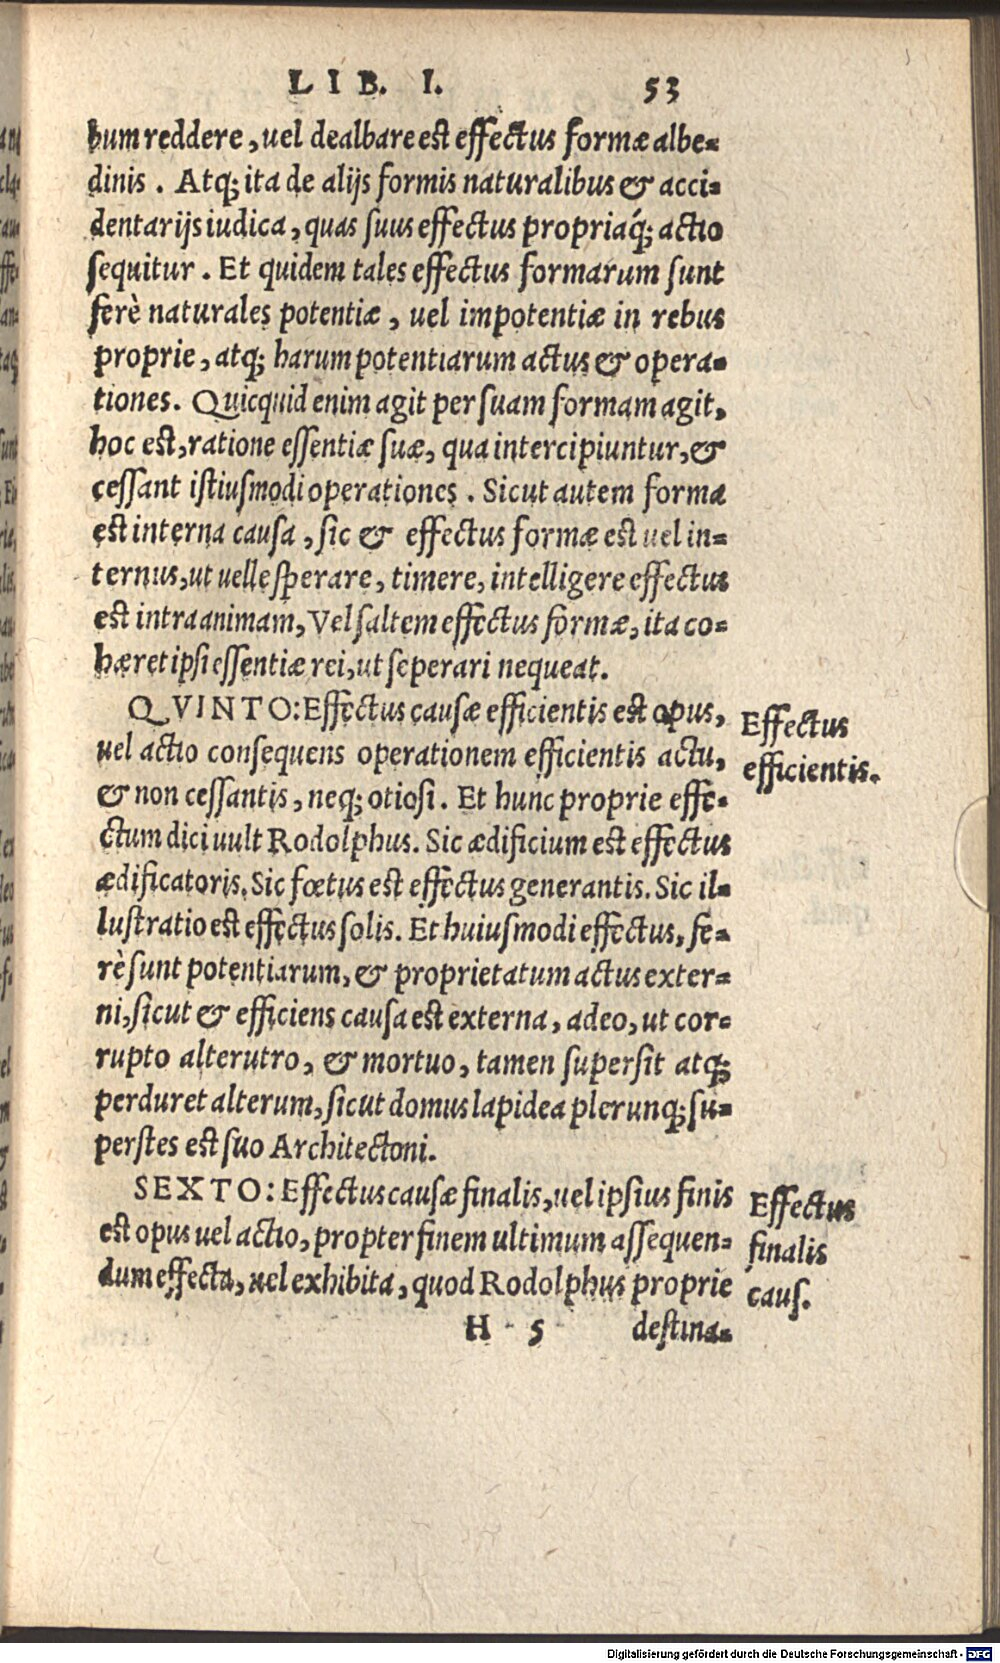 LIB. I. 53
bum reddere, uel dealbare est effectus formæ albe-
dinis. Atq; ita de alijs formis naturalibus & acci-
dentarijs iudica, quas suus effectus propriáq; actio
sequitur. Et quidem tales effectus formarum sunt
ferè naturales potentiæ, uel impotentiæ in rebus
proprie, atq; harum potentiarum actus & opera-
tiones. Quicquid enim agit per suam formam agit,
hoc est, ratione essentiæ suæ, qua intercipiuntur, &
cessant istiusmodi operationes. Sicut autem forma
est interna causa, sic & effectus formæ est uel in-
ternus, ut uelle sperare, timere, intelligere effectus
est intra animam, Vel saltem effectus formæ, ita co-
hæret ipsi essentiæ rei, ut seperari nequeat.
QVINTO: Effectus causæ efficientis est opus,
uel actio consequens operationem efficientis actu,
& non cessantis, neq; otiosi. Et hunc proprie effe-
ctum dici uult Rodolphus. Sic ædificium est effectus
ædificatoris. Sic fœtus est effectus generantis. Sic il-
lustratio est effectus solis. Et huiusmodi effectus, fe-
rè sunt potentiarum, & proprietatum actus exter-
ni, sicut & efficiens causa est externa, adeo, ut cor-
rupto alterutro, & mortuo, tamen supersit atq;
perduret alterum, sicut domus lapidea plerunq; su-
perstes est suo Architectoni.
Effectus
efficientis.
SEXTO: Effectus causæ finalis, uel ipsius finis
est opus uel actio, propter finem ultimum assequen-
dum effecta, uel exhibita, quod Rodolphus proprie
Effectus
finalis
caus.
H 5 destina-
Digitalisierung gefördert durch die Deutsche Forschungsgemeinschaft - DFG